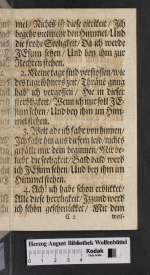 mel / Nichts ist diese eitelkeit / Ich
begehr weit mehr den Himmel. Und
die reine Seeligkeit / Da ich werde
JEsum sehen / Und bey ihm zur
Rechten stehen.
2. Meine tage sind verflossen / wie
des tages Thränē gang
hab' ich vergossen / Hie in dieser
sterbligkeit / Wenn ich nur soll JE-
sum sehen / Und bey ihm im Him-
mel stehen.
3. Welt ade ich fahr von hinnen /
Ich fahr hin aus diesem leid / nichts
ist mir dein beginnen /
liebt die seeligkeit / Bald bald werd
ich JEsum sehen / Und bey ihm im
Himmel stehen.
4. Ach! ich habe schon erblicket /
Alle diese herrligkeit / Jtzund werd
ich schön geschmücket / Mit dem
C 2
weis-
Herzog August Bibliothek Wolfenbüttel